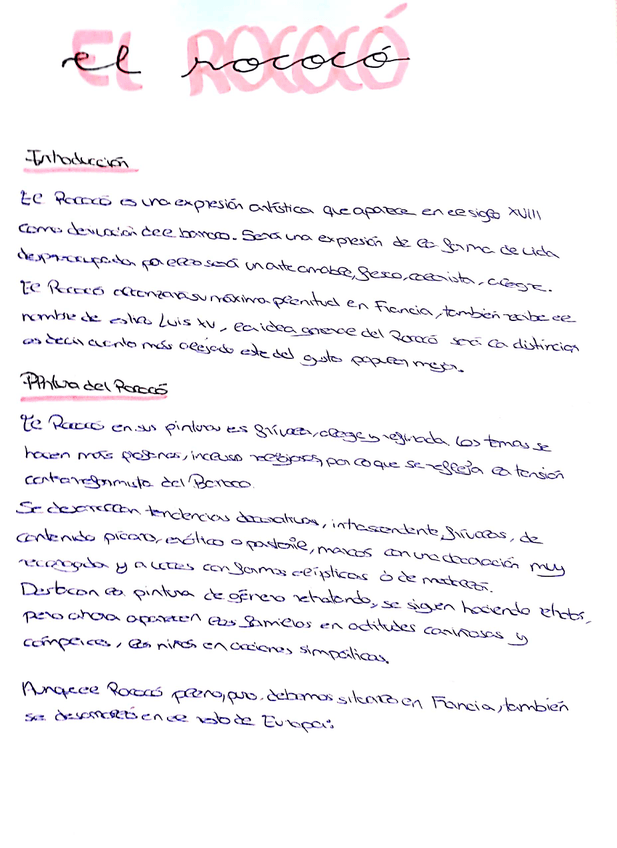 EL ROCOCÓ
el rococó
Introducción
El Rococó es una expresión artística que aparece en el siglo XVIII
como derivación del barroco. Será una expresión de la forma de vida
despreocupada por ello será un arte amable, fresco, coernista, alegre.
El Rococó alcanzará su máxima plenitud en Francia, también recibe el
nombre de estilo Luis XV, la idea general del Rococó será la distinción
es decir cuanto más alejado este del gusto popular mejor.
Pintura del Rococó
El Rococó en sus pinturas es frívola, alegre y refinada los temas se
hacen más profanos, incluso religiosos, por lo que se refleja la tensión
contrareformista del Barroco.
Se desarrollan tendencias decorativas, intrascendente, frívolas, de
contenido pícaro, exótico o pastorile, marcos con una decoración muy
recargada y a veces con formas elípticas ó de medallón.
Destacan la pintura de género retratando, se siguen haciendo retratos,
pero ahora aparecen las familias en actitudes cariñosas y
cómplices, los niños en acciones simpáticas.
Aunque el Rococó pleno, puro. debamos situarlo en Francia, también
se desarrolló en el resto de Europa.